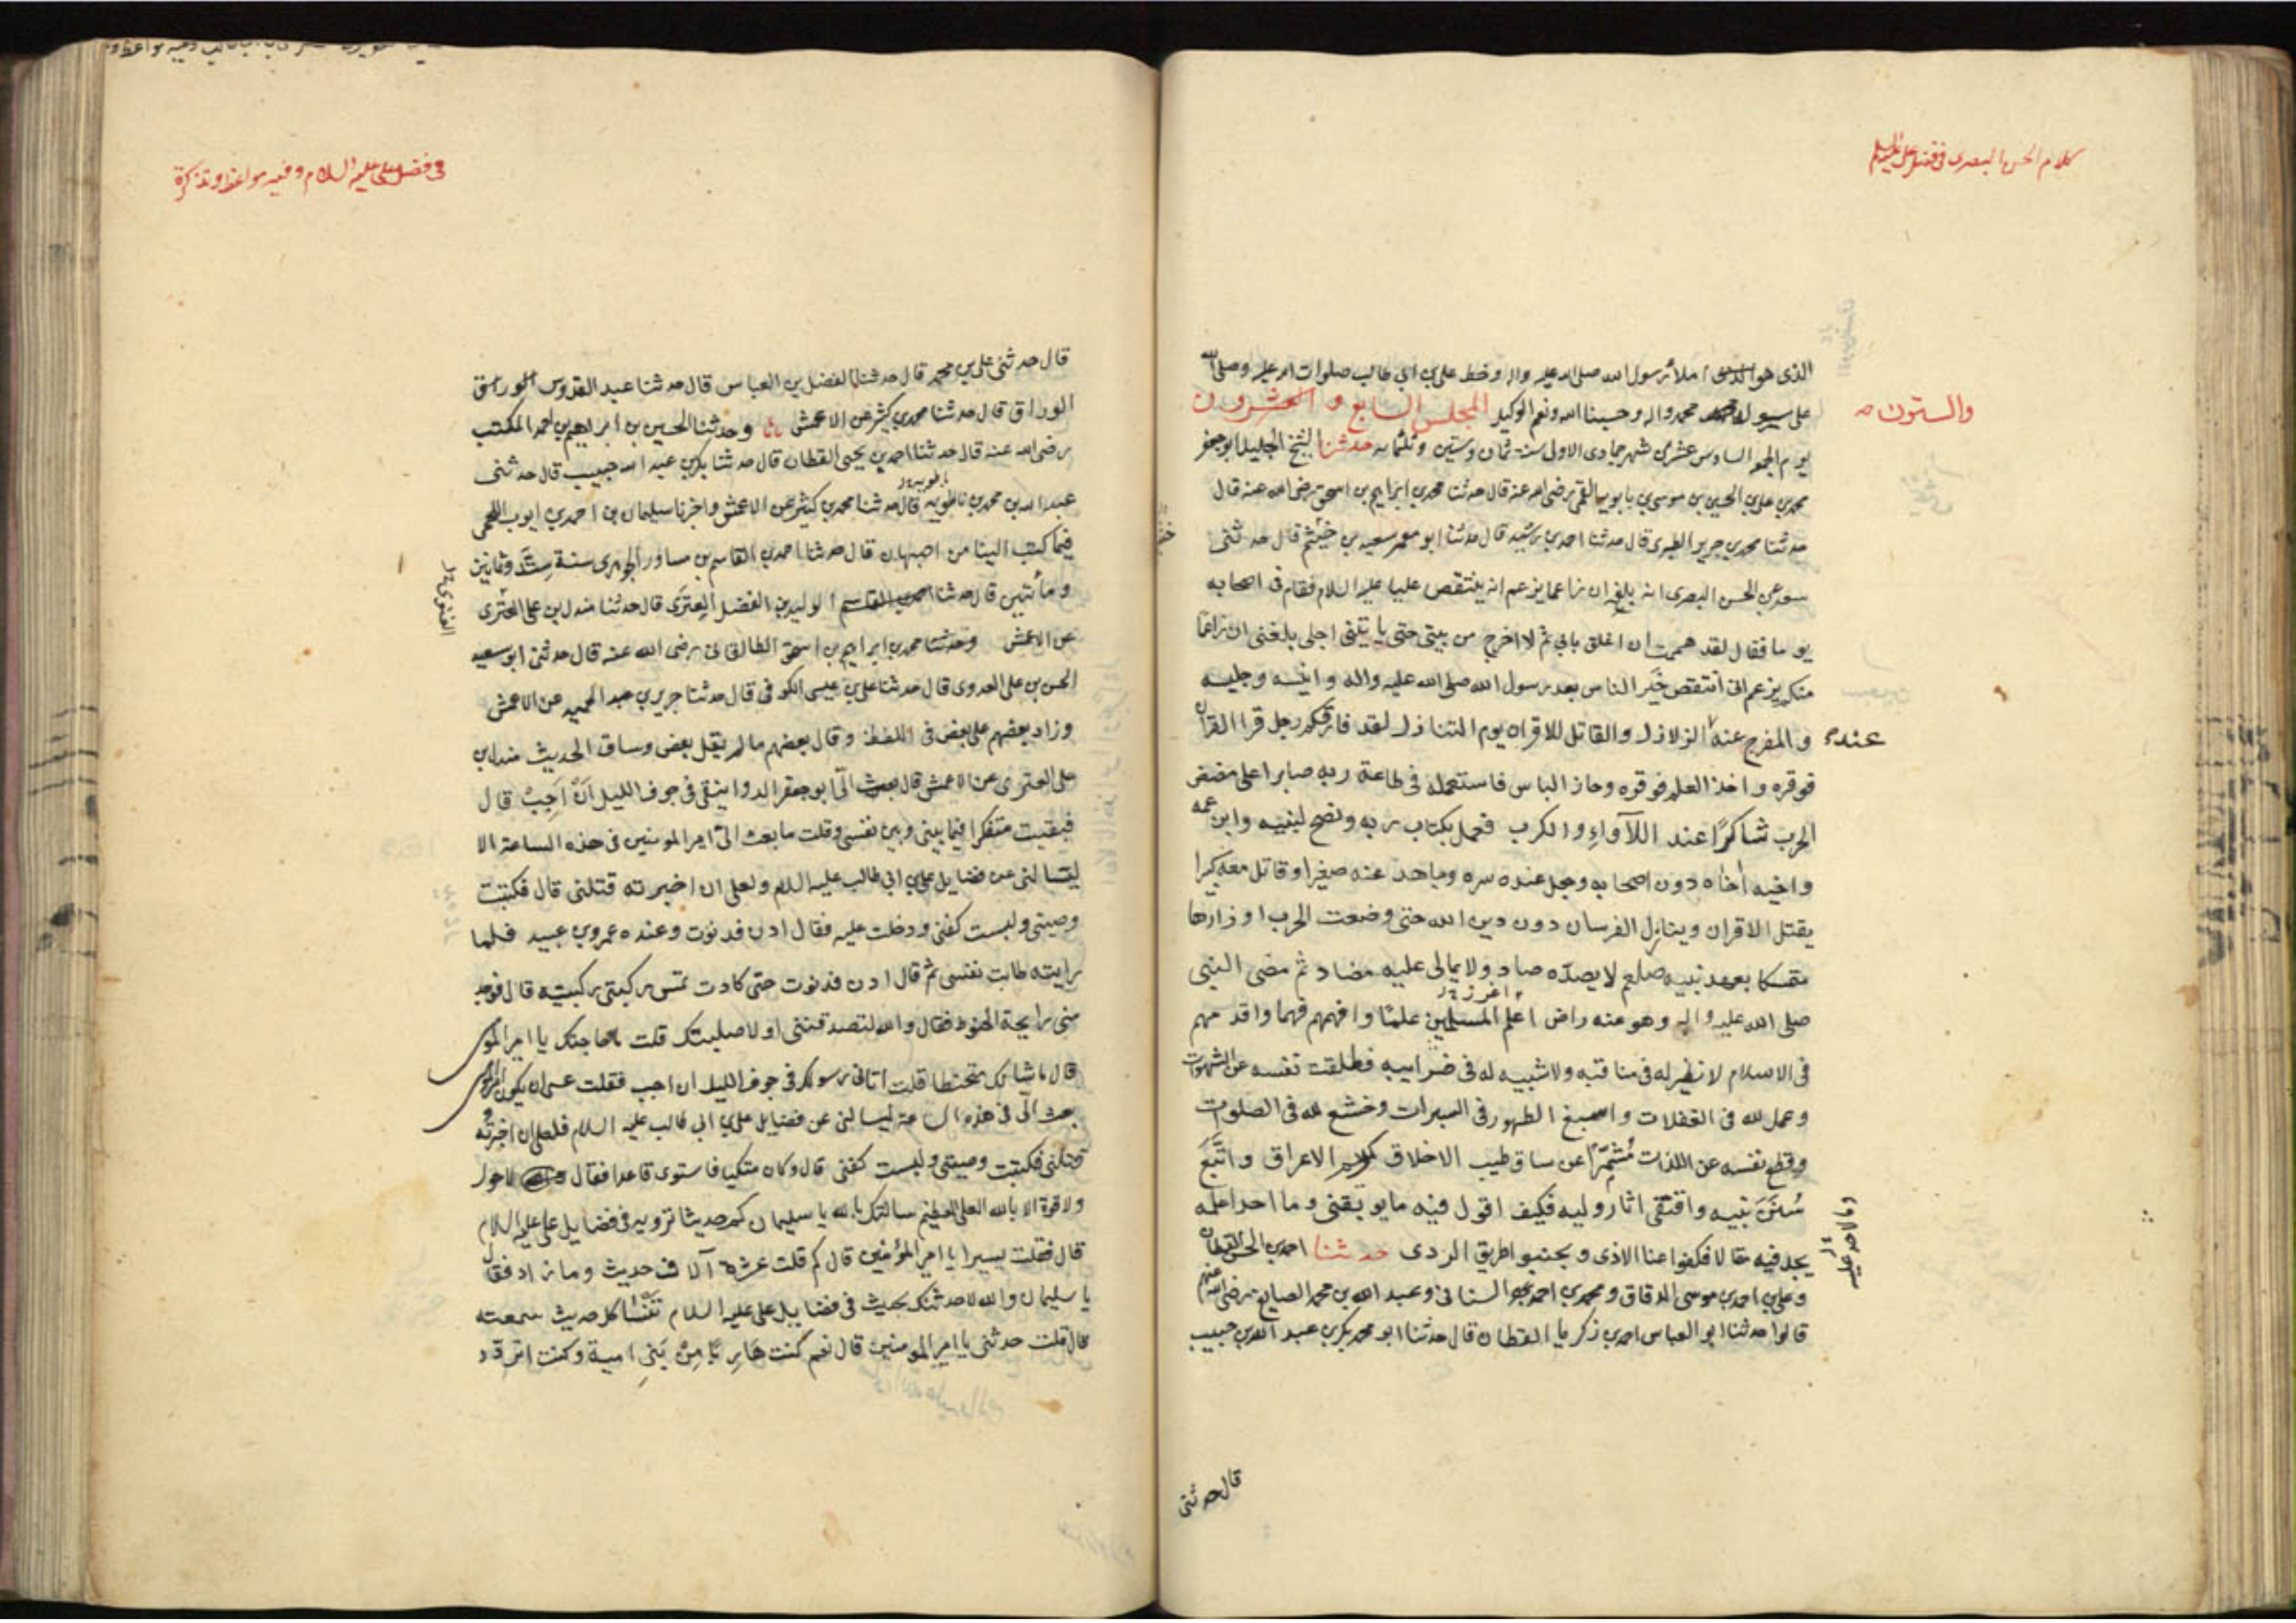 كلام الحسن البصرى فى فضل على عليه السلم
الذى هو املاء رسول الله صلى الله عليه واله وخط على بن ابى طالب صلوات الله عليه وصلى الله
على محمد واله وحسبنا الله ونعم الوكيل المجلس السابع و العشرون
والستون
يوم الجمعه السادس عشر من شهر جمادى الاولى سنة ثمان وستين وثلثمايه حدثنا الشيخ الجليل ابو جعفر
محمد بن على بن الحسين بن موسى بن بابويه القمى رضى الله عنه قال حدثنا محمد بن ابراهيم بن اسحق رضى الله عنه قال
حدثنا محمد بن جرير الطبرى قال حدثنا احمد بن رشيد قال حدثنا ابو معمر سعيد بن خيثم قال حدثنى
سعد عن الحسن البصرى انه بلغه ان زاعما يزعم انه ينتقص عليا عليه السلام فقام فى اصحابه
يوما فقال لقد هممت ان اغلق بابى ثم لا اخرج من بيتى حتى ياتينى اجلى بلغنى ان زاعما
منكم يزعم انى انتقص خير الناس بعد رسول الله صلى الله عليه واله وانيسه وجليسه
و المفرج عنه الزلازل والقاتل للاقران يوم التنازل لقد فارقكم رجل قرا القران
عنده
فوقره واخذ العلم فوقره وحاز الباس فاستعمله فى طاعة ربه صابرا على مضض
الحرب شاكرًا عند اللآواءِ و الكرب فعمل بكتاب ربه ونصح لنبيه وابن عمه
واخيه اخاه دون اصحابه وجعل عنده سره وجاحد عنه صغيرا وقاتل معه كبيرا
يقتل الاقران وينازل الفرسان دون دين الله حتى وضعت الحرب اوزارها
متمسكا بعهد نبيه صلعم لا يصدّه صاد ولا يمالى عليه مضاد ثم مضى النبى
صلى الله عليه واله وهو عنه راض اعلم المسلمين علمًا وافهمهم فهما واقدمهم
فى الاسلام لا نظير له فى مناقبه ولا شبيه له فى ضرايبه فظلقت نفسه عن الشهوات
وعمل لله فى الغفلات واسبغ الطهور فى السبرات وخشع لله فى الصلوات
وقطع نفسه عن اللذات مُشمِّرًا عن ساق طيب الاخلاق كريم الاعراق واتَّبَعَ
سُنَنَ نبيه واقتفى اثار وليه فكيف اقول فيه ما يوبقنى وما احدا علمه
يجد فيه مقالا فكفوا عنا الاذى وتجنبوا طريق الردى حدثنا احمد بن الحسن القطان
وعلى بن احمد بن موسى الدقاق ومحمد بن احمد السنانى وعبد الله بن محمد الصايغ رضى الله عنهم
قالوا حدثنا ابو العباس احمد بن زكريا القطان قال حدثنا ابو محمد بكر بن عبد الله بن حبيب
قال حدثنى
فى فضل على عليه السلام وفيه مواعظ وتذكرة
قال حدثنى على بن محمد قال حدثنا الفضل بن العباس قال حدثنا عبد القدوس
الوراق قال حدثنا محمد بن كثير عن الاعمش وحدثنا الحسين بن ابراهيم بن احمد المكتب
رضى الله عنه قال حدثنا احمد بن يحيى القطان قال حدثنا بكر بن عبد الله حبيب قال حدثنى
عبد الله بن محمد بن ناطويه قال حدثنا محمد بن كثير عن الاعمش واخبرنا سليمان بن احمد بن ايوب اللخمى
فيما كتب الينا من اصبهان قال حدثنا احمد بن القاسم بن مساور الجوهرى سنة ست وثمانين
ومأتين قال حدثنا الوليد بن الفضل العنزى قال حدثنا مندل بن على العنزى
عن الاعمش وحدثنا محمد بن ابراهيم بن اسحق الطالقانى رضى الله عنه قال حدثنى ابو سعيد
الحسن بن على العدوى قال حدثنا على بن عيسى الكوفى قال حدثنا جرير بن عبد الحميد عن الاعمش
وزاد بعضهم على بعض فى اللفظ وقال بعضهم ما لم يقل بعض وساق الحديث مندل بن
على العنزى عن الاعمش قال بعث الىّ ابو جعفر الدوانيقى فى جوف الليل اَنْ اَجِبْ قال
فبقيت متفكرا فيما بينى وبين نفسى وقلت ما بعث الىّ امير المومنين فى هذه الساعة الا
ليسالنى عن فضايل على بن ابى طالب عليه السلام ولعلى ان اخبرته قتلنى قال فكتبت
وصيتى ولبست كفنى ودخلت عليه فقال ادن فدنوت وعنده عمرو بن عبيد فلما
رايته طابت نفسى ثم قال ادن فدنوت حتى كادت تمس ركبتى ركبته قال فوجد
منى رايحة الحنوط فقال والله لتصدقننى او لاصلبنك قلت ما حاجتك يا امير المومنين
قال ما شانك متحنطا قلت اتانى رسولك فى جوف الليل ان اجب فقلت عسى ان يكون امير المومنين
بعث الى فى هذه الساعة ليسالنى عن فضايل على بن ابى طالب عليه السلام فلعلى ان اخبرتُه
قتلنى فكتبت وصيتى ولبست كفنى قال وكان متكيا فاستوى قاعدا فقال لا حول
ولا قوة الا بالله العلى العظيم سالتك بالله يا سليمان كم حديثا ترويه فى فضايل على عليه السلام
قال فقلت يسيرا يا امير المؤمنين قال كم قلت عشرة آلاف حديث وما زاد فقال
يا سليمان والله لاحدثنك بحديث فى فضايل على عليه السلام تنسا كل حديث سمعته
قال قلت حدثنى يا امير المومنين قال نعم كنت هَارِبًا مِنْ بَنِى امية وكنت اتردد